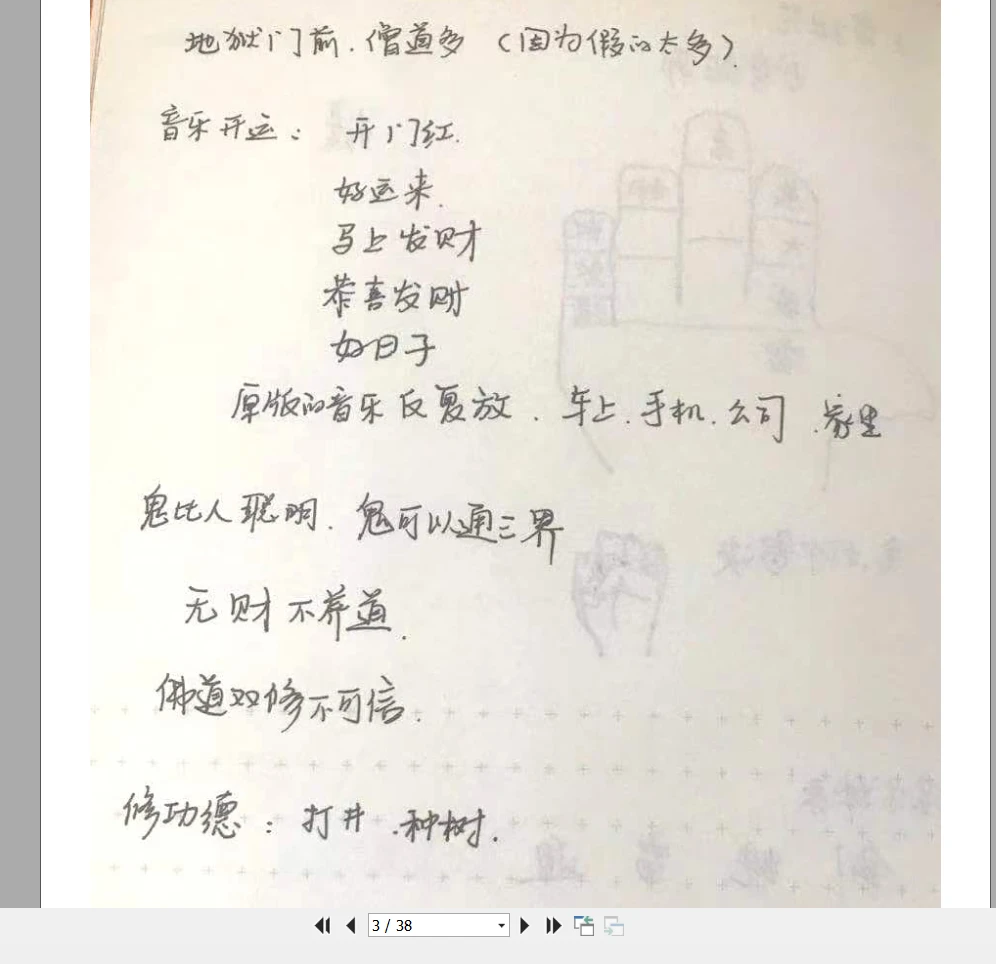 地狱门前.僧道多 (因为假的太多).
音乐开运: 开门红.
好运来.
马上发财
恭喜发财
好日子
原版的音乐反复放.车上.手机.公司.家里
鬼比人聪明.鬼可以通三界
无财不养道.
佛道双修不可信.
修功德:打井.种树.
3 / 38